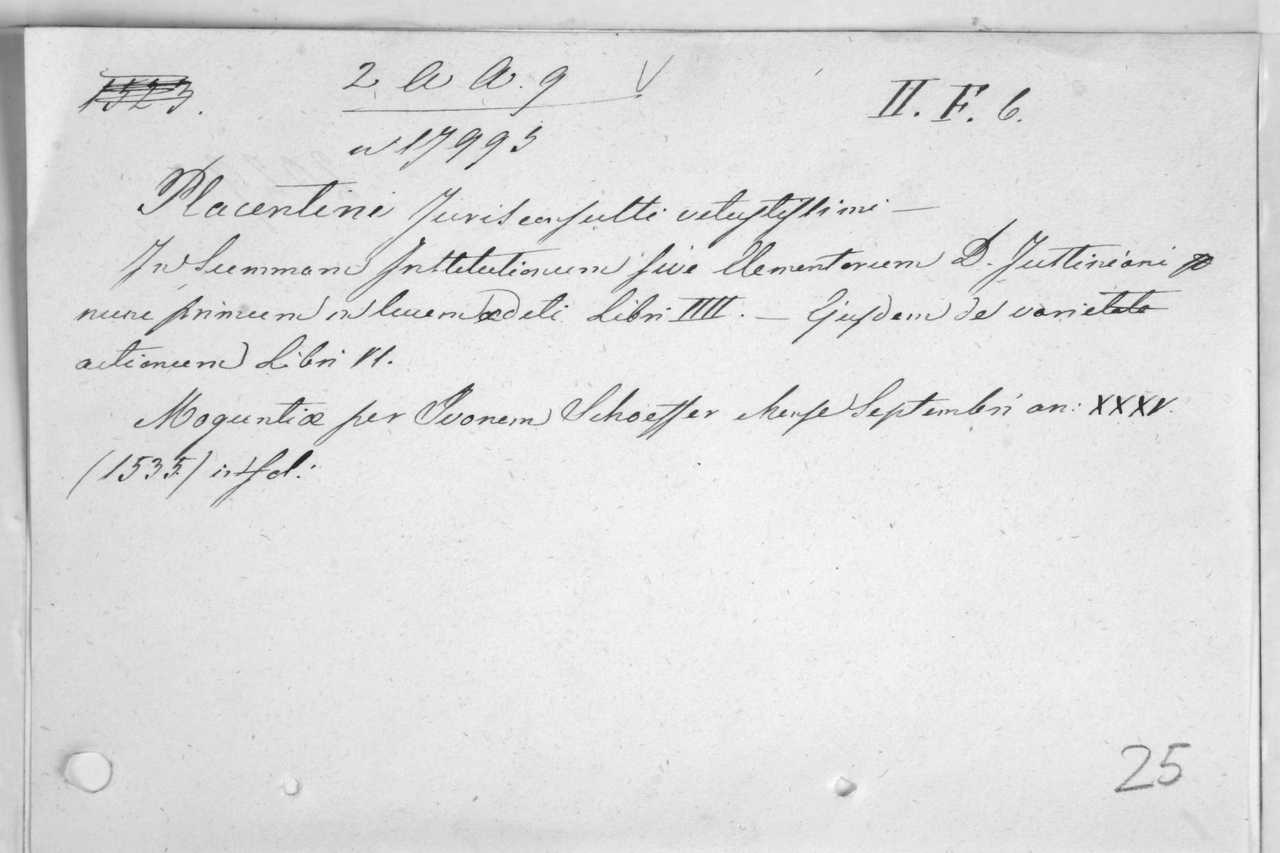 1523.
2 a A. 9 V
II. F. 6.
17993
Placentini Jurisconsulti vetustissimi —
In Summam Institutionum sive Elementorum D. Justiniani
nunc primum in lucem editi Libri IIII. — Ejusdem de varietate
actionum Libri VI.
Moguntiæ per Ivonem Schoeffer Mense Septembri an: XXXV.
(1535) in fol:
25